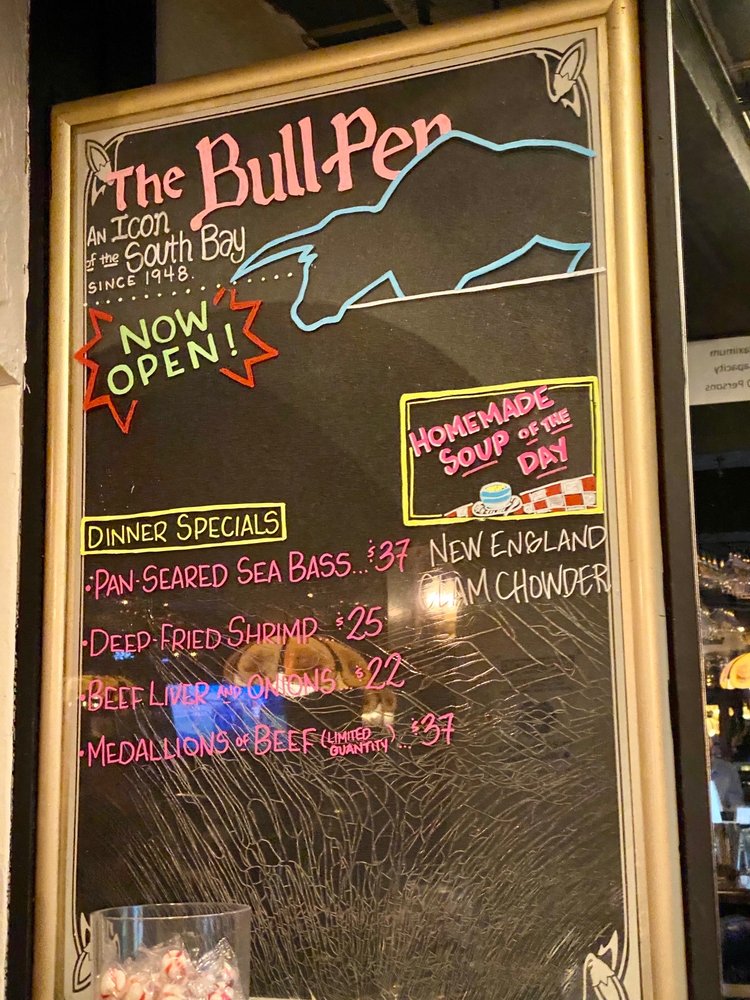 The Bull Pen
An Icon
of the South Bay
SINCE 1948.
NOW
OPEN!
HOMEMADE
SOUP OF THE
DAY
DINNER SPECIALS
•PAN-SEARED SEA BASS...$37
NEW ENGLAND
CLAM CHOWDER
•DEEP-FRIED SHRIMP $25
•BEEF LIVER AND ONIONS $22
•MEDALLIONS of BEEF (LIMITED
QUANTITY)...$37
Capacity
Persons